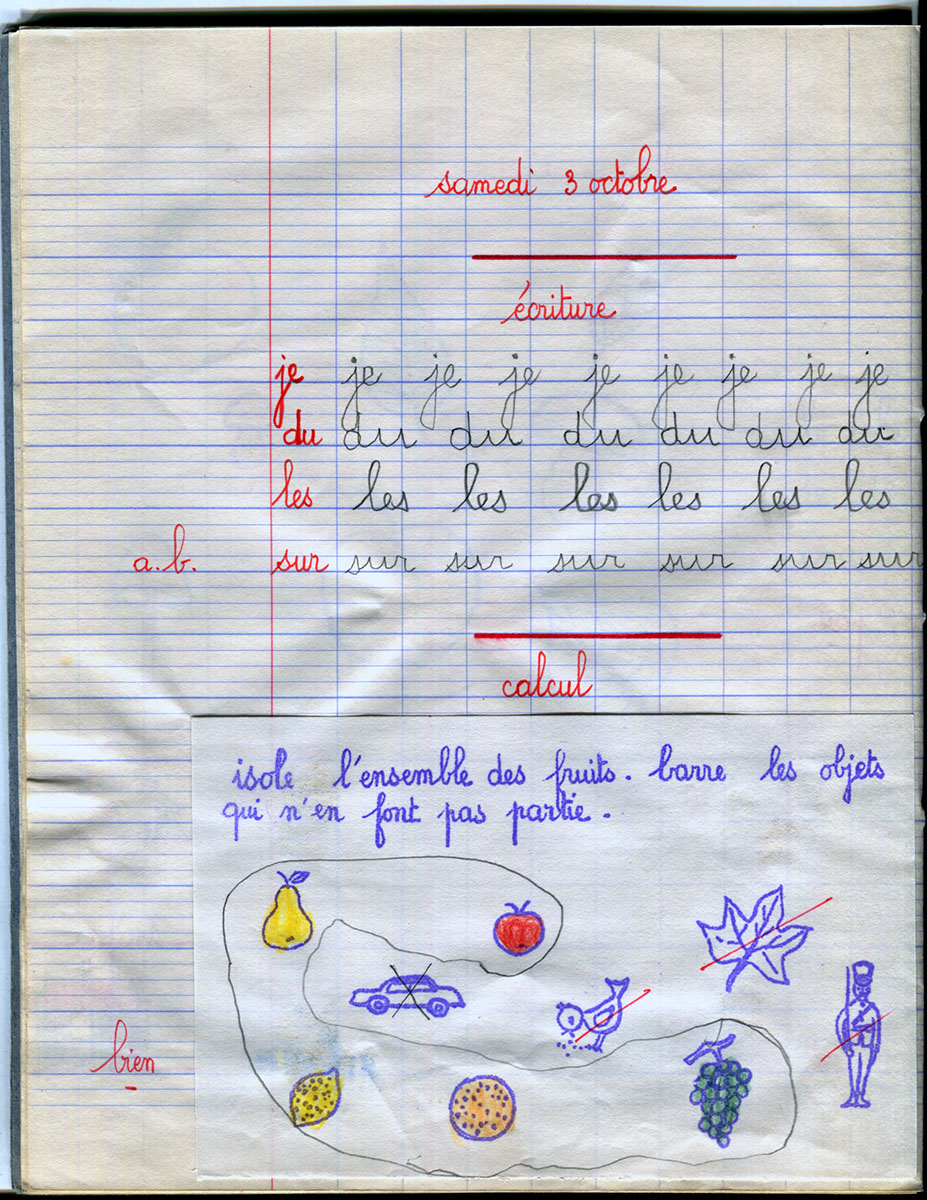 samedi 3 octobre
écriture
je je je je je je je je je
du du du du du du du
les les les les les les les
a.b. sur sur sur sur sur sur sur
calcul
isole l'ensemble des fruits. barre les objets
qui n'en font pas partie.
bien